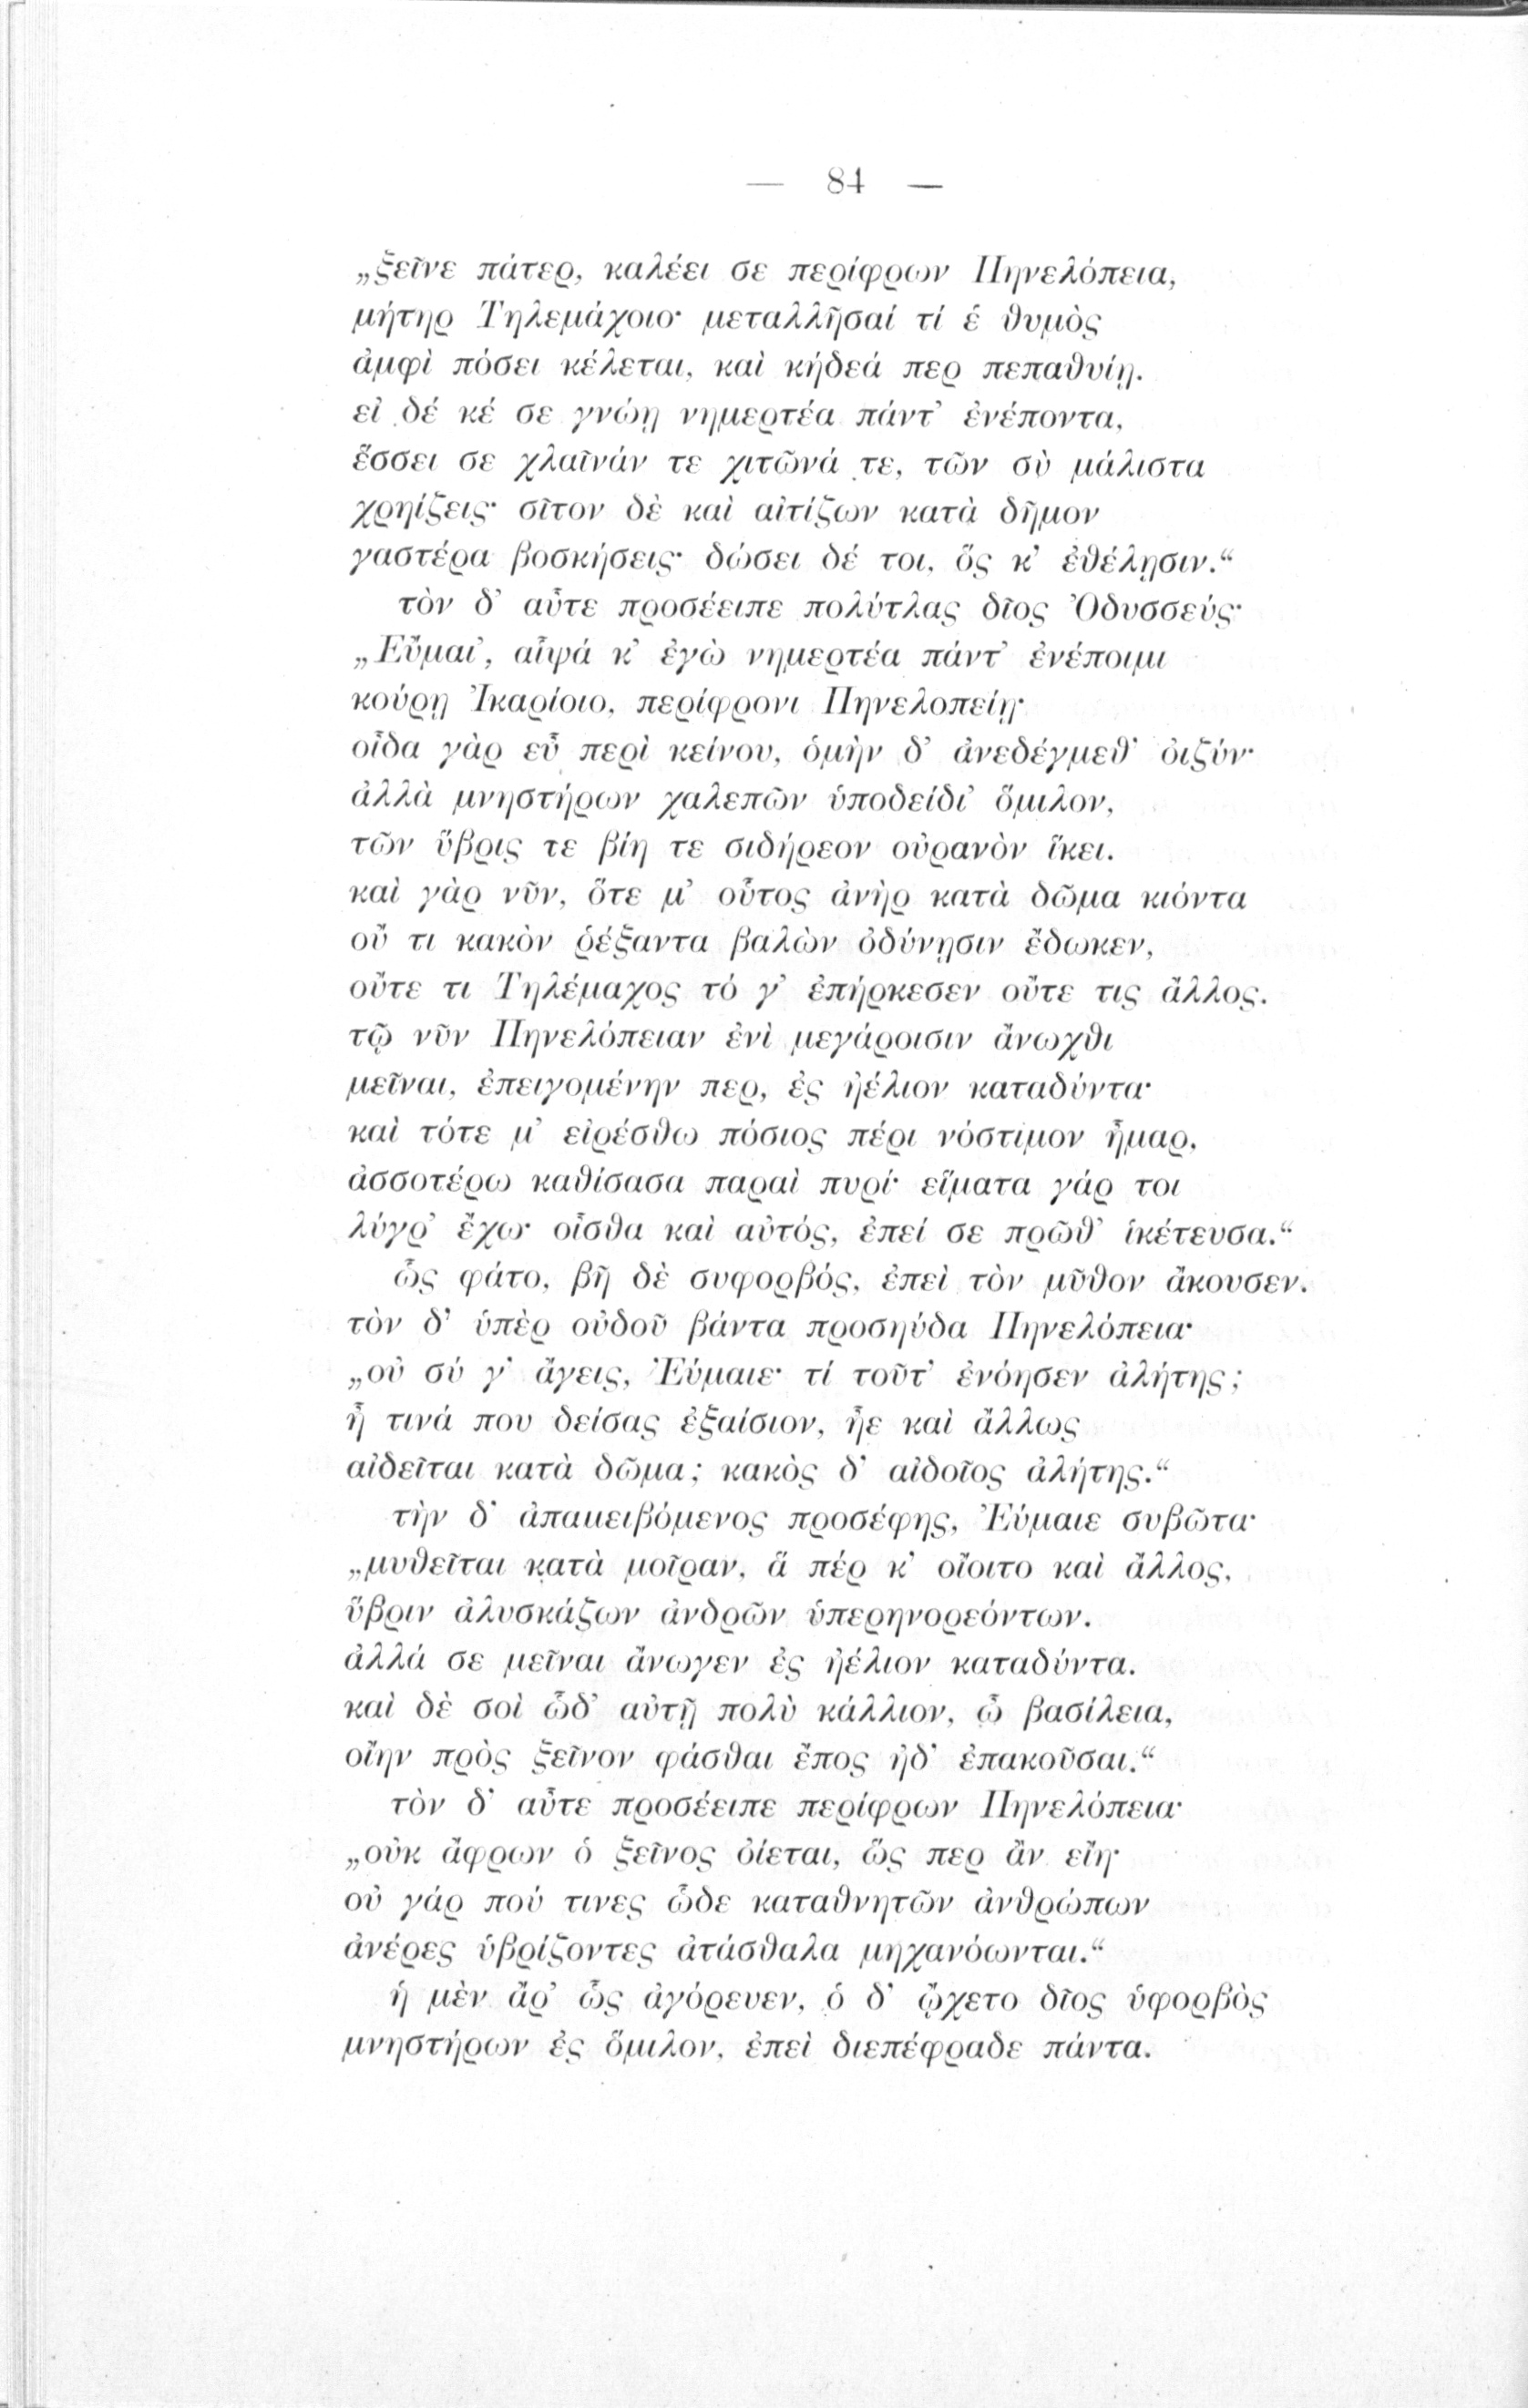 — 84 —
„ξεῖνε πάτερ, καλέει σε περίφρων Πηνελόπεια,
μήτηρ Τηλεμάχοιο· μεταλλῆσαί τί ἑ θυμὸς
ἀμφὶ πόσει κέλεται, καὶ κήδεά περ πεπαθυίῃ.
εἰ δέ κέ σε γνώῃ νημερτέα πάντ’ ἐνέποντα,
ἕσσει σε χλαῖνάν τε χιτῶνά τε, τῶν σὺ μάλιστα
χρηίζεις· σῖτον δὲ καὶ αἰτίζων κατὰ δῆμον
γαστέρα βοσκήσεις· δώσει δέ τοι, ὅς κ’ ἐθέλῃσιν.“
τὸν δ’ αὖτε προσέειπε πολύτλας δῖος Ὀδυσσεύς·
„Εὔμαι’, αἶψά κ’ ἐγὼ νημερτέα πάντ’ ἐνέποιμι
κούρῃ Ἰκαρίοιο, περίφρονι Πηνελοπείῃ·
οἶδα γὰρ εὖ περὶ κείνου, ὁμὴν δ’ ἀνεδέγμεθ’ ὀιζύν·
ἀλλὰ μνηστήρων χαλεπῶν ὑποδείδι’ ὅμιλον,
τῶν ὕβρις τε βίη τε σιδήρεον οὐρανὸν ἵκει.
καὶ γὰρ νῦν, ὅτε μ’ οὗτος ἀνὴρ κατὰ δῶμα κιόντα
οὔ τι κακὸν ῥέξαντα βαλὼν ὀδύνῃσιν ἔδωκεν,
οὔτε τι Τηλέμαχος τό γ’ ἐπήρκεσεν οὔτε τις ἄλλος.
τῷ νῦν Πηνελόπειαν ἐνὶ μεγάροισιν ἄνωχθι
μεῖναι, ἐπειγομένην περ, ἐς ἠέλιον καταδύντα·
καὶ τότε μ’ εἰρέσθω πόσιος πέρι νόστιμον ἦμαρ,
ἀσσοτέρω καθίσασα παραὶ πυρί· εἵματα γάρ τοι
λύγρ’ ἔχω· οἶσθα καὶ αὐτός, ἐπεί σε πρῶθ’ ἱκέτευσα.“
ὣς φάτο, βῆ δὲ συφορβός, ἐπεὶ τὸν μῦθον ἄκουσεν.
τὸν δ’ ὑπὲρ οὐδοῦ βάντα προσηύδα Πηνελόπεια·
„οὐ σύ γ’ ἄγεις, Ἐύμαιε· τί τοῦτ’ ἐνόησεν ἀλήτης;
ἦ τινά που δείσας ἐξαίσιον, ἦε καὶ ἄλλως
αἰδεῖται κατὰ δῶμα; κακὸς δ’ αἰδοῖος ἀλήτης.“
τὴν δ’ ἀπαμειβόμενος προσέφης, Ἐύμαιε συβῶτα·
„μυθεῖται κατὰ μοῖραν, ἅ πέρ κ’ οἴοιτο καὶ ἄλλος,
ὕβριν ἀλυσκάζων ἀνδρῶν ὑπερηνορεόντων.
ἀλλά σε μεῖναι ἄνωγεν ἐς ἠέλιον καταδύντα.
καὶ δὲ σοὶ ὧδ’ αὐτῇ πολὺ κάλλιον, ὦ βασίλεια,
οἴην πρὸς ξεῖνον φάσθαι ἔπος ἠδ’ ἐπακοῦσαι.“
τὸν δ’ αὖτε προσέειπε περίφρων Πηνελόπεια·
„οὐκ ἄφρων ὁ ξεῖνος ὀίεται, ὥς περ ἂν εἴη·
οὐ γάρ πού τινες ὧδε καταθνητῶν ἀνθρώπων
ἀνέρες ὑβρίζοντες ἀτάσθαλα μηχανόωνται.“
ἡ μὲν ἄρ’ ὣς ἀγόρευεν, ὁ δ’ ᾤχετο δῖος ὑφορβὸς
μνηστήρων ἐς ὅμιλον, ἐπεὶ διεπέφραδε πάντα.